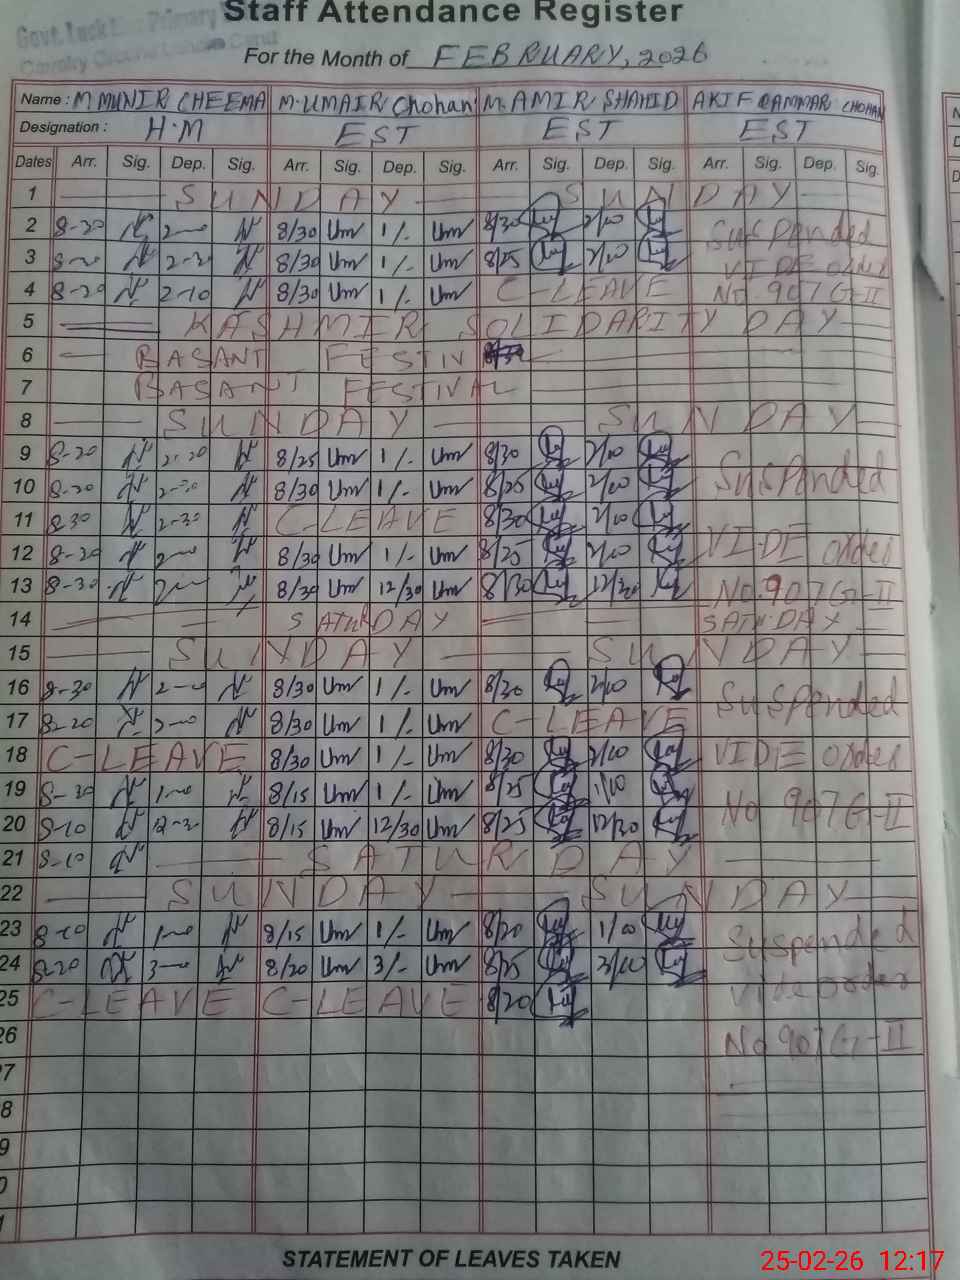 Staff Attendance Register
Govt.
For the Month of FEBRUARY, 2026
Name : M MUNIR CHEEMA M.UMAIR Chohan M. AMIR SHAHID AKIF CAMMAR CHOHAN
Designation : H.M EST EST EST
Dates Arr. Sig. Dep. Sig. Arr. Sig. Dep. Sig. Arr. Sig. Dep. Sig. Arr. Sig. Dep. Sig.
1 SUNDAY SUNDAY
2 8-20 2-00 8/30 Um 1/- Um 8/30 2/00 Suspended
3 8-20 2-20 8/30 Um 1/- Um 8/25 2/00 VIDE
4 8-20 2-10 8/30 Um 1/- Um C-LEAVE No. 907 G-II
5 KASHMIR SOLIDARITY DAY
6 BASANT FESTIV
7 BASANT FESTIVAL
8 SUNDAY SUNDAY
9 8-20 2-20 8/25 Um 1/- Um 8/30 2/00
10 8-20 8/30 Um 1/- Um 8/25 2/00 Suspended
11 8-30 2-30 C-LEAVE 8/30 2/00
12 8-20 2-00 8/30 Um 1/- Um 8/25 2/00 VIDE order
13 8-30 2-00 8/30 Um 12/30 Um 8/30 12/30 No. 907 G-II
14 SATURDAY SATURDAY
15 SUNDAY SUNDAY
16 8-30 2-00 8/30 Um 1/- Um 8/30 2/00 Suspended
17 8-20 2-00 8/30 Um 1/- Um C-LEAVE
18 C-LEAVE 8/30 Um 1/- Um 8/30 2/00 VIDE order
19 8-30 1-00 8/15 Um 1/- Um 8/25 1/00
20 8-10 12-30 8/15 Um 12/30 Um 8/25 12/30 No 907 G-II
21 8-10 SATURDAY
22 SUNDAY SUNDAY
23 8-10 1-00 8/15 Um 1/- Um 8/20 1/00 Suspended
24 8-20 3-00 8/20 Um 3/- Um 8/25 3/00
25 C-LEAVE C-LEAVE 8/20 vide order
26 No 907 G-II
7
8
9
0
1
STATEMENT OF LEAVES TAKEN
25-02-26 12:17